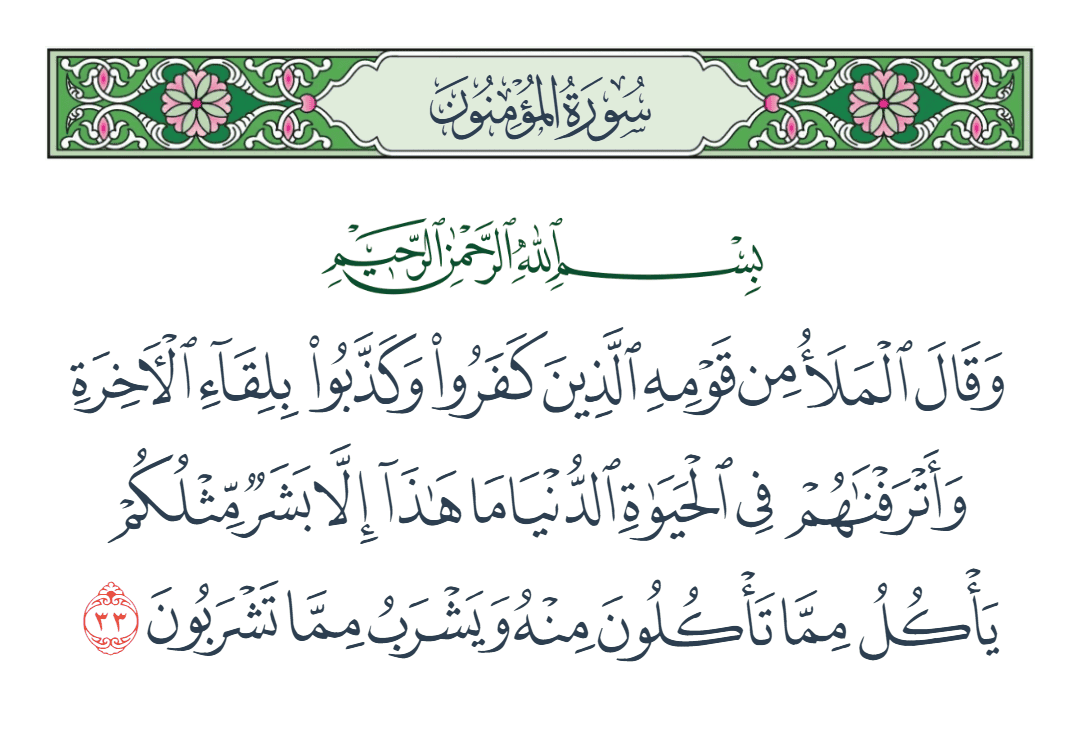 سُورَةُ المُؤْمِنُونَ
بِسْمِ ٱللَّهِ ٱلرَّحْمَٰنِ ٱلرَّحِيمِ
وَقَالَ ٱلْمَلَأُ مِن قَوْمِهِ ٱلَّذِينَ كَفَرُوا۟ وَكَذَّبُوا۟ بِلِقَآءِ ٱلْأَخِرَةِ
وَأَتْرَفْنَٰهُمْ فِى ٱلْحَيَوٰةِ ٱلدُّنْيَا مَا هَٰذَآ إِلَّا بَشَرٌ مِّثْلُكُمْ
يَأْكُلُ مِمَّا تَأْكُلُونَ مِنْهُ وَيَشْرَبُ مِمَّا تَشْرَبُونَ ٣٣